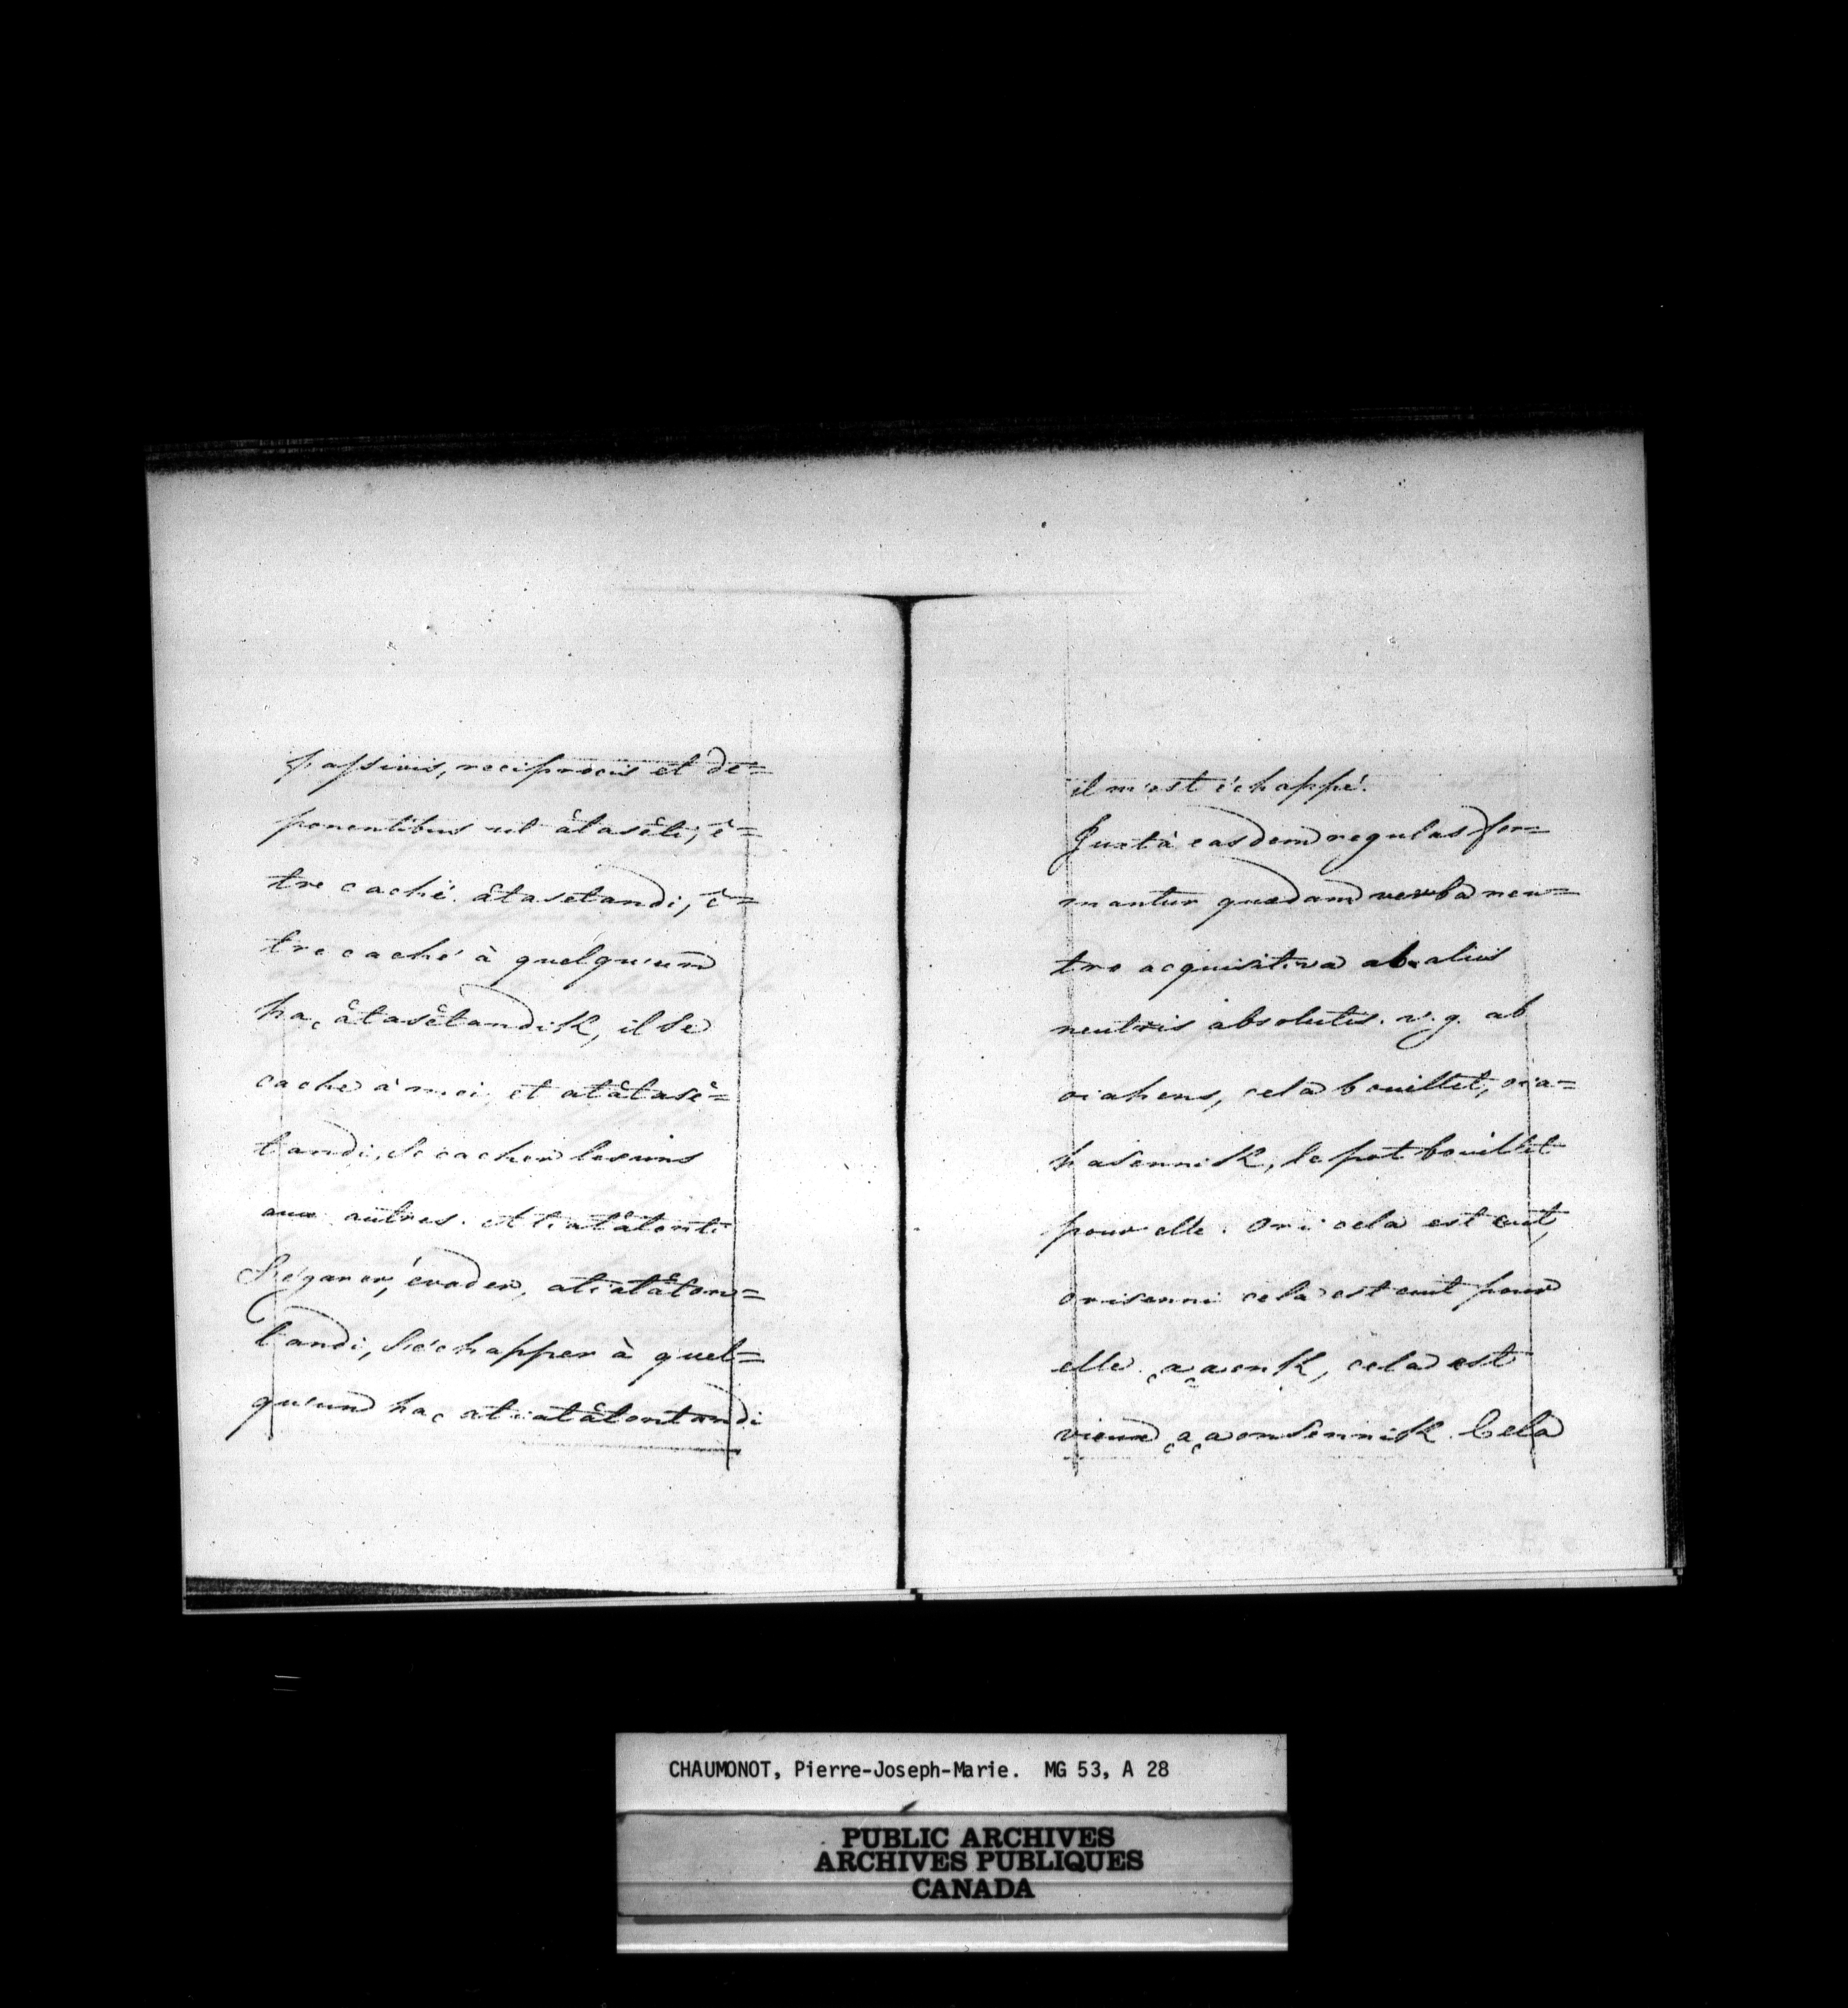 passivis, reciprocis et de=
ponentibus ut âtasêti, ê=
tre caché. âtasetandi, ê=
tre caché à quelqu'un
haͺ âtasêtandiK, il se
cache à moi, et atâtasê=
tandi, Se cacher les uns
aux autres. Atiatâtonti
S'égarer, évader, atiatâton=
tandi, S'échapper à quel=
qu'un haͺ atiatâtontandi
il m'est échappé.
Juxtà easdem regulas for=
mantur quædam verba neu=
tro acquisitiva ab aliis
neutris absolutis. v.g. ab
oiahens, cela bouillet, oia=
hasenniK, le pot bouillet
pour elle. Ori cela est cuit,
orisenni cela est cuit pour
elle. ͺaͺaonK, cela est
vieux ͺaͺaonsenniK. Cela
CHAUMONOT, Pierre-Joseph-Marie. MG 53, A 28
PUBLIC ARCHIVES
ARCHIVES PUBLIQUES
CANADA